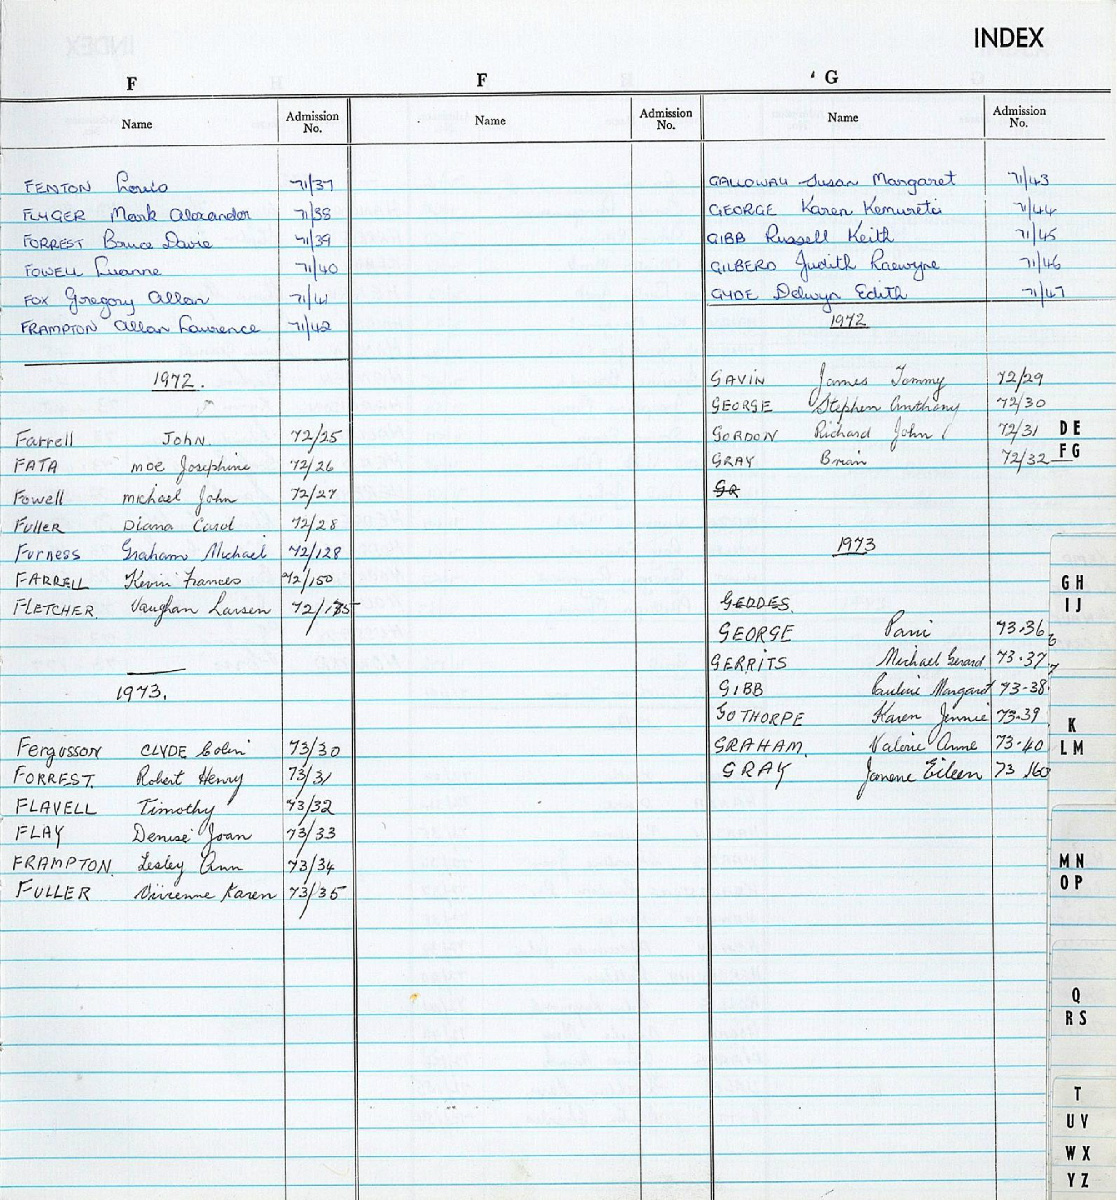 INDEX
F
Name
Admission No.
FENTON Louis 71/37
FLYGER Mark Alexander 71/38
FORREST Bruce Davie 71/39
FOWELL Luanne 71/40
FOX Gregory Allan 71/41
FRAMPTON Allan Lawrence 71/42
1972.
Farrell John. 72/25
FATA moe Josephine 72/26
Fowell michael John 72/27
Fuller Diana Carol 72/28
Furness Graham Michael 72/128
FARRELL Kevin Frances 72/150
FLETCHER. Vaughan Larsen 72/185
1973.
Fergusson CLYDE Colin 73/30
FORREST. Robert Henry 73/31
FLAVELL Timothy 73/32
FLAY Denise Joan 73/33
FRAMPTON. Lesley Ann 73/34
FULLER Vivienne Karen 73/35
F
Name
Admission No.
G
Name
Admission No.
GALLOWAY Susan Margaret 71/43
GEORGE Karen 71/44
GIBB Russell Keith 71/45
GILBERD Judith Raewyne 71/46
GYDE Delwyn Edith 71/47
1972
GAVIN James Tommy 72/29
GEORGE Stephen Anthony 72/30
GORDON Richard John 72/31
GRAY Brian 72/32
1973
GEDDES.
GEORGE 73-36
GERRITS Michael Gerard 73-37
GIBB Pauline Margaret 73-38
GOTHORPE Karen Jennie 73-39
GRAHAM. Valerie Anne 73-40
GRAY Janene Eileen 73 160
DE
FG
GH
IJ
K
LM
MN
OP
Q
RS
T
UV
WX
YZ